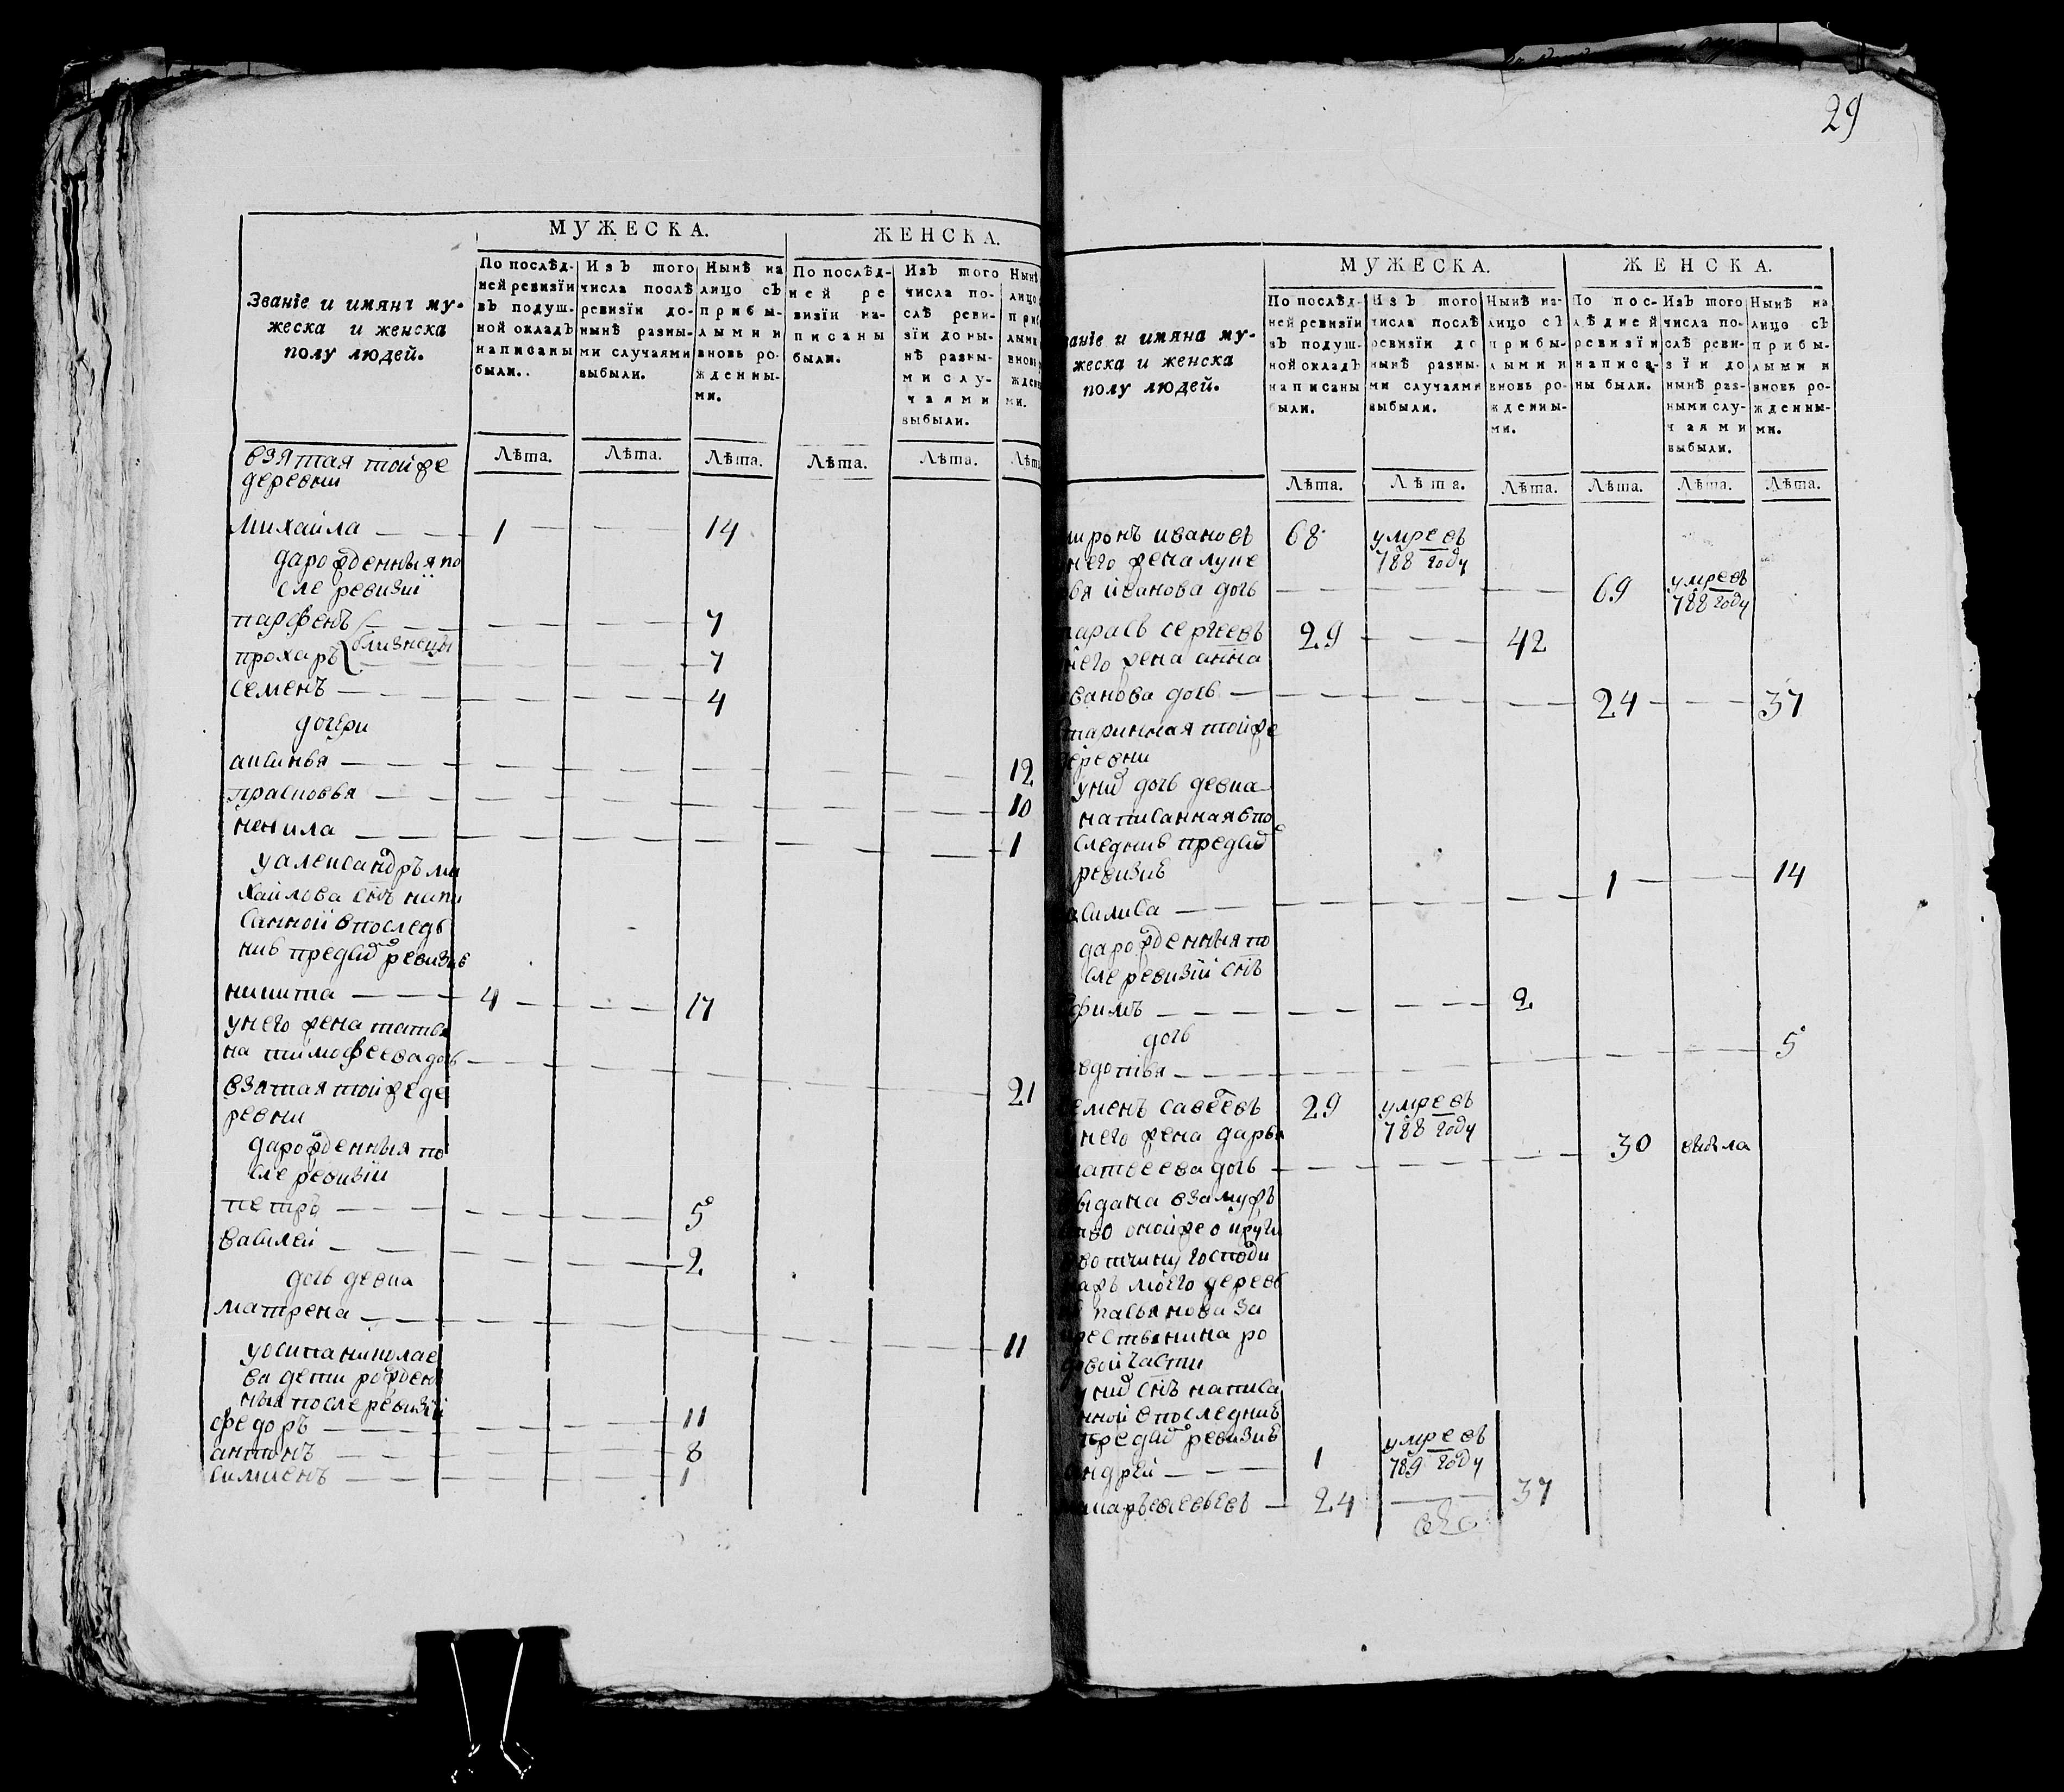 29
МУЖЕСКА.
ЖЕНСКА.
Званїе и имянa му-
жеска и женска
полу людей.
По послѣд-
ней ревизїи
въ подуш-
ной окладъ
написаны
были.
Изъ того
числа послѣ
ревизїи до-
нынѣ разны-
ми случаями
выбыли.
Нынѣ на
лицо съ
прибы-
лыми и
вновь ро-
жденны-
ми.
По послѣд-
ней ре
визїи на-
писаны
были.
Изъ того
числа по-
слѣ реви-
зїи до ны-
нѣ разны-
ми слу-
чаями
выбыли.
Нынѣ
лицо
при
лыми
вновь
жден
ми.
Лѣта. Лѣта. Лѣта. Лѣта. Лѣта. Лѣт
взятая тойже
деревни
михайла 1 14
дарожденныя по
сле ревизїи
парфенъ 7
близнецы
прохаръ 7
семенъ 4
дочери
аксинья 12
прасковья 10
ненила 1
у александръ ми
хайлова снъ напи
санной впоследь
ние предид ревизие
никита 4 17
унего жена татья
на тимофеева дочь
взятая тойже де 21
ревни
дарожденныя по
сле ревизїи
петръ 5
василей 2
дочь девка
матрена 11
уосипа николае
ва дети рожден
ныя после ревизїи
федоръ 11
антонъ 8
симиенъ 1
МУЖЕСКА.
ЖЕНСКА.
анїе и имяна му-
жеска и женска
полу людей.
По послѣд-
ней ревизїи
въ подуш-
ной окладъ
написаны
были.
Изъ того
числа послѣ
ревизїи до
нынѣ разны-
ми случаями
выбыли.
Нынѣ на-
лицо съ
прибы-
лыми и
вновь ро-
жденны-
ми.
По пос-
лѣдней
ревизїи
написа-
ны были.
Изъ того
числа по-
слѣ реви-
зїи до
нынѣ раз-
ными слу-
чаями
выбыли.
Нынѣ на
лицо съ
прибы-
лыми и
вновь ро-
жденны-
ми.
Лѣта. Лѣта. Лѣта. Лѣта. Лѣта. Лѣта.
миронъ ивановъ 68 умреъ
788 году
него жена луке
рья иванова дочь 69 умреъ
788 году
тарасъ сергеевъ 29 42
него жена анна
иванова дочь 24 37
старинная тойже
деревни
унид дочь девка
написанная впо
следние предид
ревизие
василиса 1 14
дарожденныя по
сле ревизїи снъ
ефимъ 2
дочь
авдотья 5
семенъ савеевъ 29 умреъ
788 году
него жена дарья
матвеева дочь 30 выбыла
выдана взамужъ
оной же округи
вотчину господи
моего дерев
касьянова за
крестьянина
части
унид снъ написа
нной впоследние
предид ревизие
андрей 1 умреъ
789 году
24 37